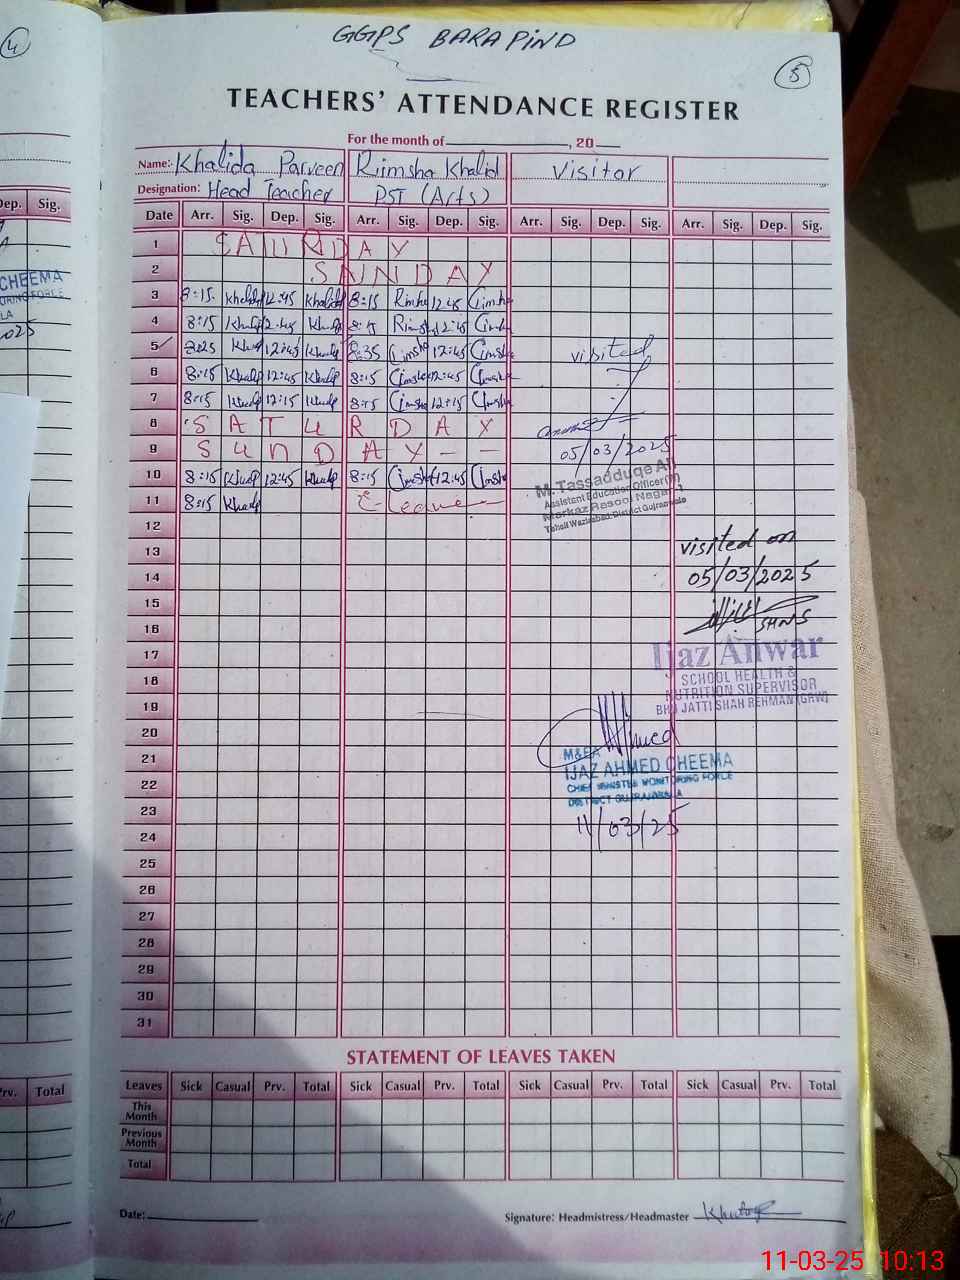 4
Dep. Sig.
CHEEMA
GGPS BARA PIND
5
TEACHERS' ATTENDANCE REGISTER
For the month of , 20
Name:- Khalida Parveen Rimsha Khalid Visitor
Designation: Head Teacher PST (Arts)
Date Arr. Sig. Dep. Sig. Arr. Sig. Dep. Sig. Arr. Sig. Dep. Sig. Arr. Sig. Dep. Sig.
1
2 SUNDAY
3 8:15 12:45 8:15 12:45
4 8:15 2:45 12:45
5 8:25 12:45 8:35 12:45
6 8:15 12:45 8:15 12:45
7 8:15 12:15 8:15 12:15
8 SATURDAY
9 SUNDAY - -
10 8:15 12:45 8:15 12:45
11 8:15 Leave
12
13
14
15
16
17
18
19
20
21
22
23
24
25
26
27
28
29
30
31
visited
05/03/2025
M. Tassadduqe Ali
Assistent Education Officer (M)
Markaz Rasool Nagar-1
Tehsil Wazirabad, District Gujranwala
visited on
05/03/2025
SHNS
Ijaz Anwar
SCHOOL HEALTH &
NUTRITION SUPERVISOR
BHU JATTI SHAH REHMAN (GRW)
M&EA
IJAZ AHMED CHEEMA
CHIEF MINISTER MONITORING FORCE
DISTRICT GUJRANWALA
11/03/25
STATEMENT OF LEAVES TAKEN
Leaves Sick Casual Prv. Total Sick Casual Prv. Total Sick Casual Prv. Total Sick Casual Prv. Total
This Month
Previous Month
Total
Prv. Total
Date:
Signature: Headmistress/Headmaster
11-03-25 10:13